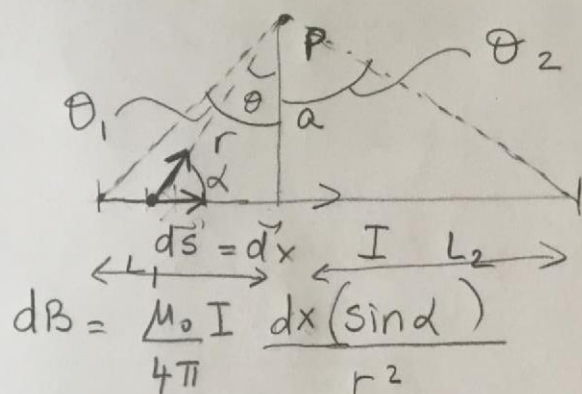 P
θ₂
θ₁
θ
a
r
α
ds = dx
I
L₁
L₂
dB = μ₀ I dx (sinα)
4π r²